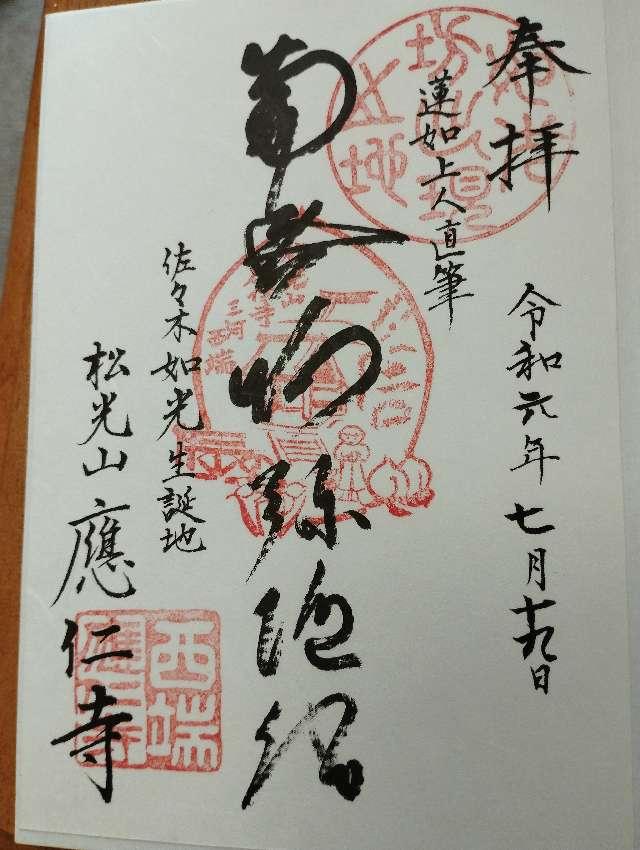 奉拝
令和元年七月十九日
蓮如上人直筆
南無阿弥陀仏
佐々木如光生誕地
松光山應仁寺
三河
西端
西端
應仁寺